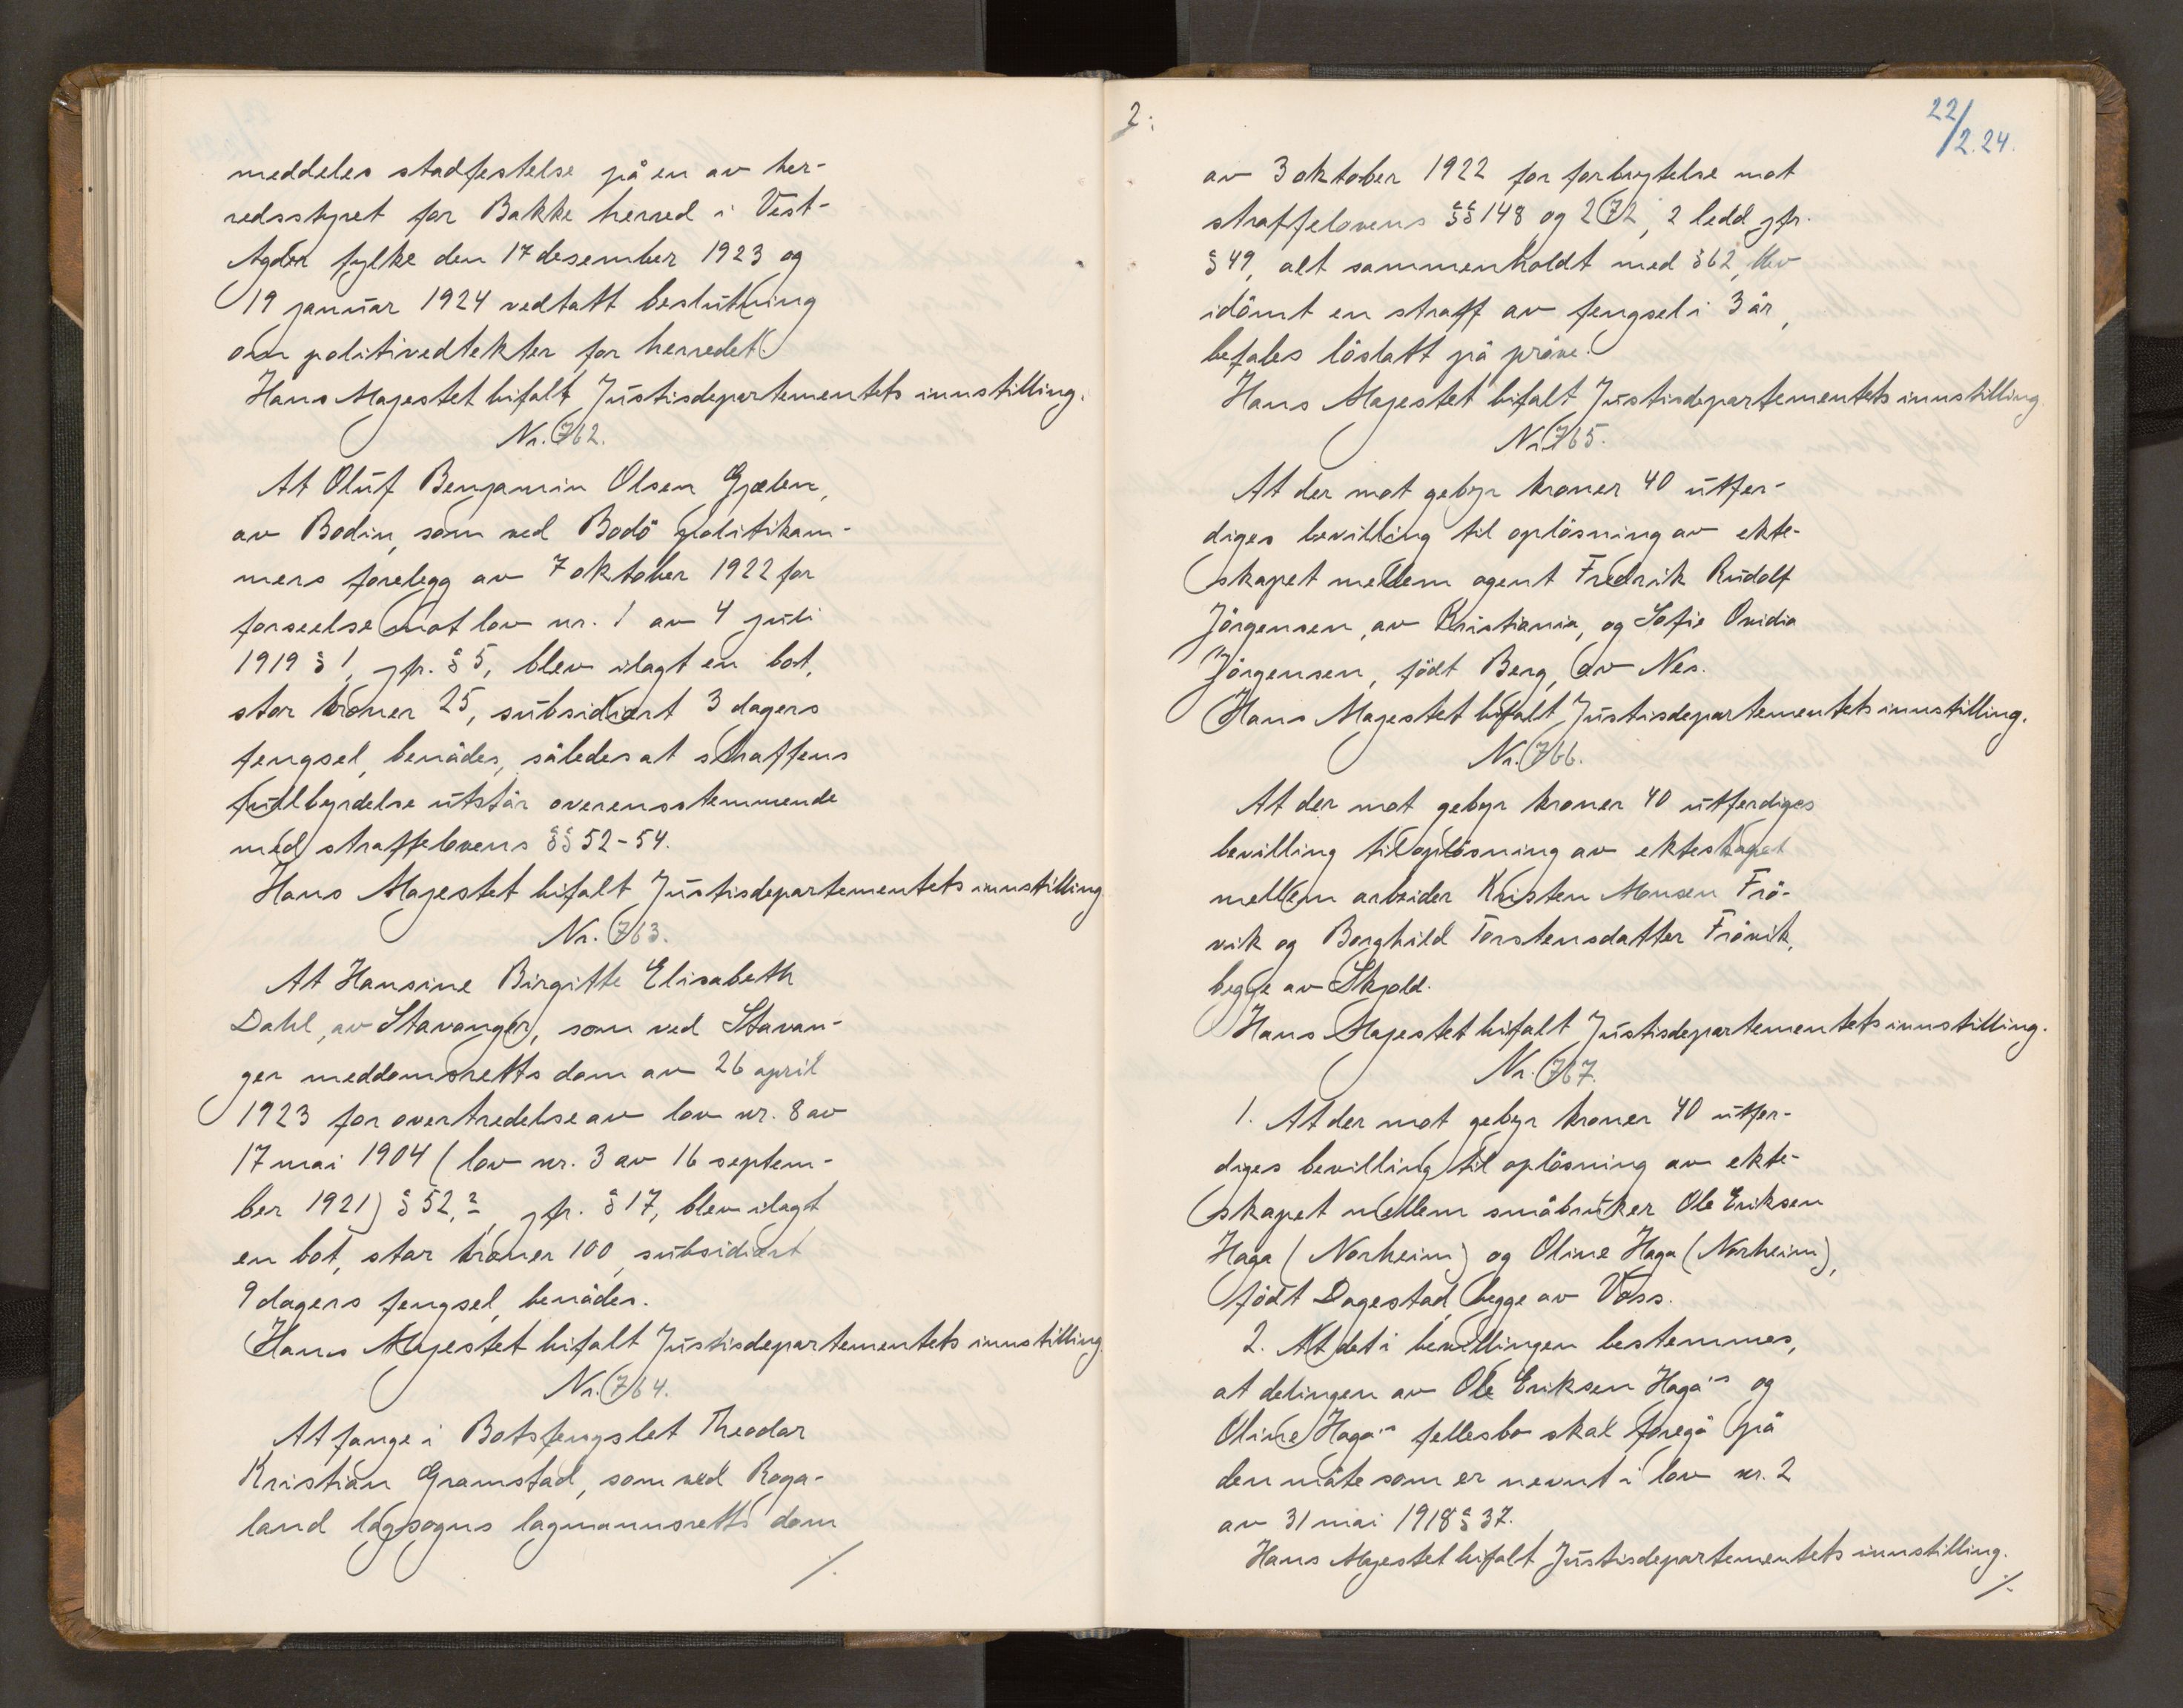 meddeles stadfestelse på en av her-
redsstyret for Bakke herred i Vest-
Agder fylke den 17 desember 1923 og
19 januar 1924 vedtatt beslutning
om politivedtekter for herredet.
Hans Majestet bifalt Justisdepartementets innstilling.
Nr. 762.
At Oluf Benjamin Olsen Gjælen,
av Bodin, som ved Bodö politikam-
mers forelegg av 7 oktober 1922 for
forseelse mot lov nr. 1 av 4 juli
1919 § 1, jfr. § 5, blev ilagt en bot,
stor kroner 25, subsidiært 3 dagers
fengsel, benådes, således at straffens
fullbyrdelse utstår overensstemmende
med straffelovens §§ 52-54.
Hans Majestet bifalt Justisdepartementets innstilling
Nr. 763.
At Hansine Birgitte Elisabeth
Dahl, av Stavanger, som ved Stavan-
ger meddomsretts dom av 26 april
1923 for overtredelse av lov nr. 8 av
17 mai 1904 (lov nr. 3 av 16 septem-
ber 1921) § 52,2, jfr. § 17, blev ilagt
en bot, stor kroner 100, subsidiært
9 dagers fengsel, benådes.
Hans Majestet bifalt Justisdepartementets innstilling
Nr. 764.
At fange i Botsfengslet Theodor
Kristian Gramstad, som ved Roga-
land lagsogns lagmannsretts dom
./.
2.
22/2.24.
av 3 oktober 1922 for forbrytelse mot
straffelovens §§ 148 og 272, 2 ledd jfr.
§ 49, alt sammenholdt med § 62, blev
idömt en straff av fengsel i 3 år,
befales löslatt på pröve.
Hans Majestet bifalt Justisdepartementets innstilling.
Nr. 765.
At der mot gebyr kroner 40 utfer-
diges bevilling til oplösning av ekte-
skapet mellem agent Fredrik Rudolf
Jörgensen, av Kristiania, og Sofie Ovidia
Jörgensen, födt Berg, av Nes.
Hans Majestet bifalt Justisdepartementets innstilling.
Nr. 766.
At der mot gebyr kroner 40 utferdiges
bevilling til oplösning av ekteskapet
mellem arbeider Kristen Monsen Frö-
vik og Borghild Torstensdatter Frövik,
begge av Skjold.
Hans Majestet bifalt Justisdepartementets innstilling.
Nr. 767.
1. At der mot gebyr kroner 40 utfer-
diges bevilling til oplösning av ekte-
skapet mellem småbruker Ole Eriksen
Haga (Norheim) og Oline Haga (Norheim),
födt Dagestad, begge av Voss.
2. At det i bevillingen bestemmes,
at delingen av Ole Eriksen Haga's og
Oline Haga's fellesbo skal foregå på
den måte som er nevnt i lov nr. 2
av 31 mai 1918 § 37.
Hans Majestet bifalt Justisdepartementets innstilling.
./.